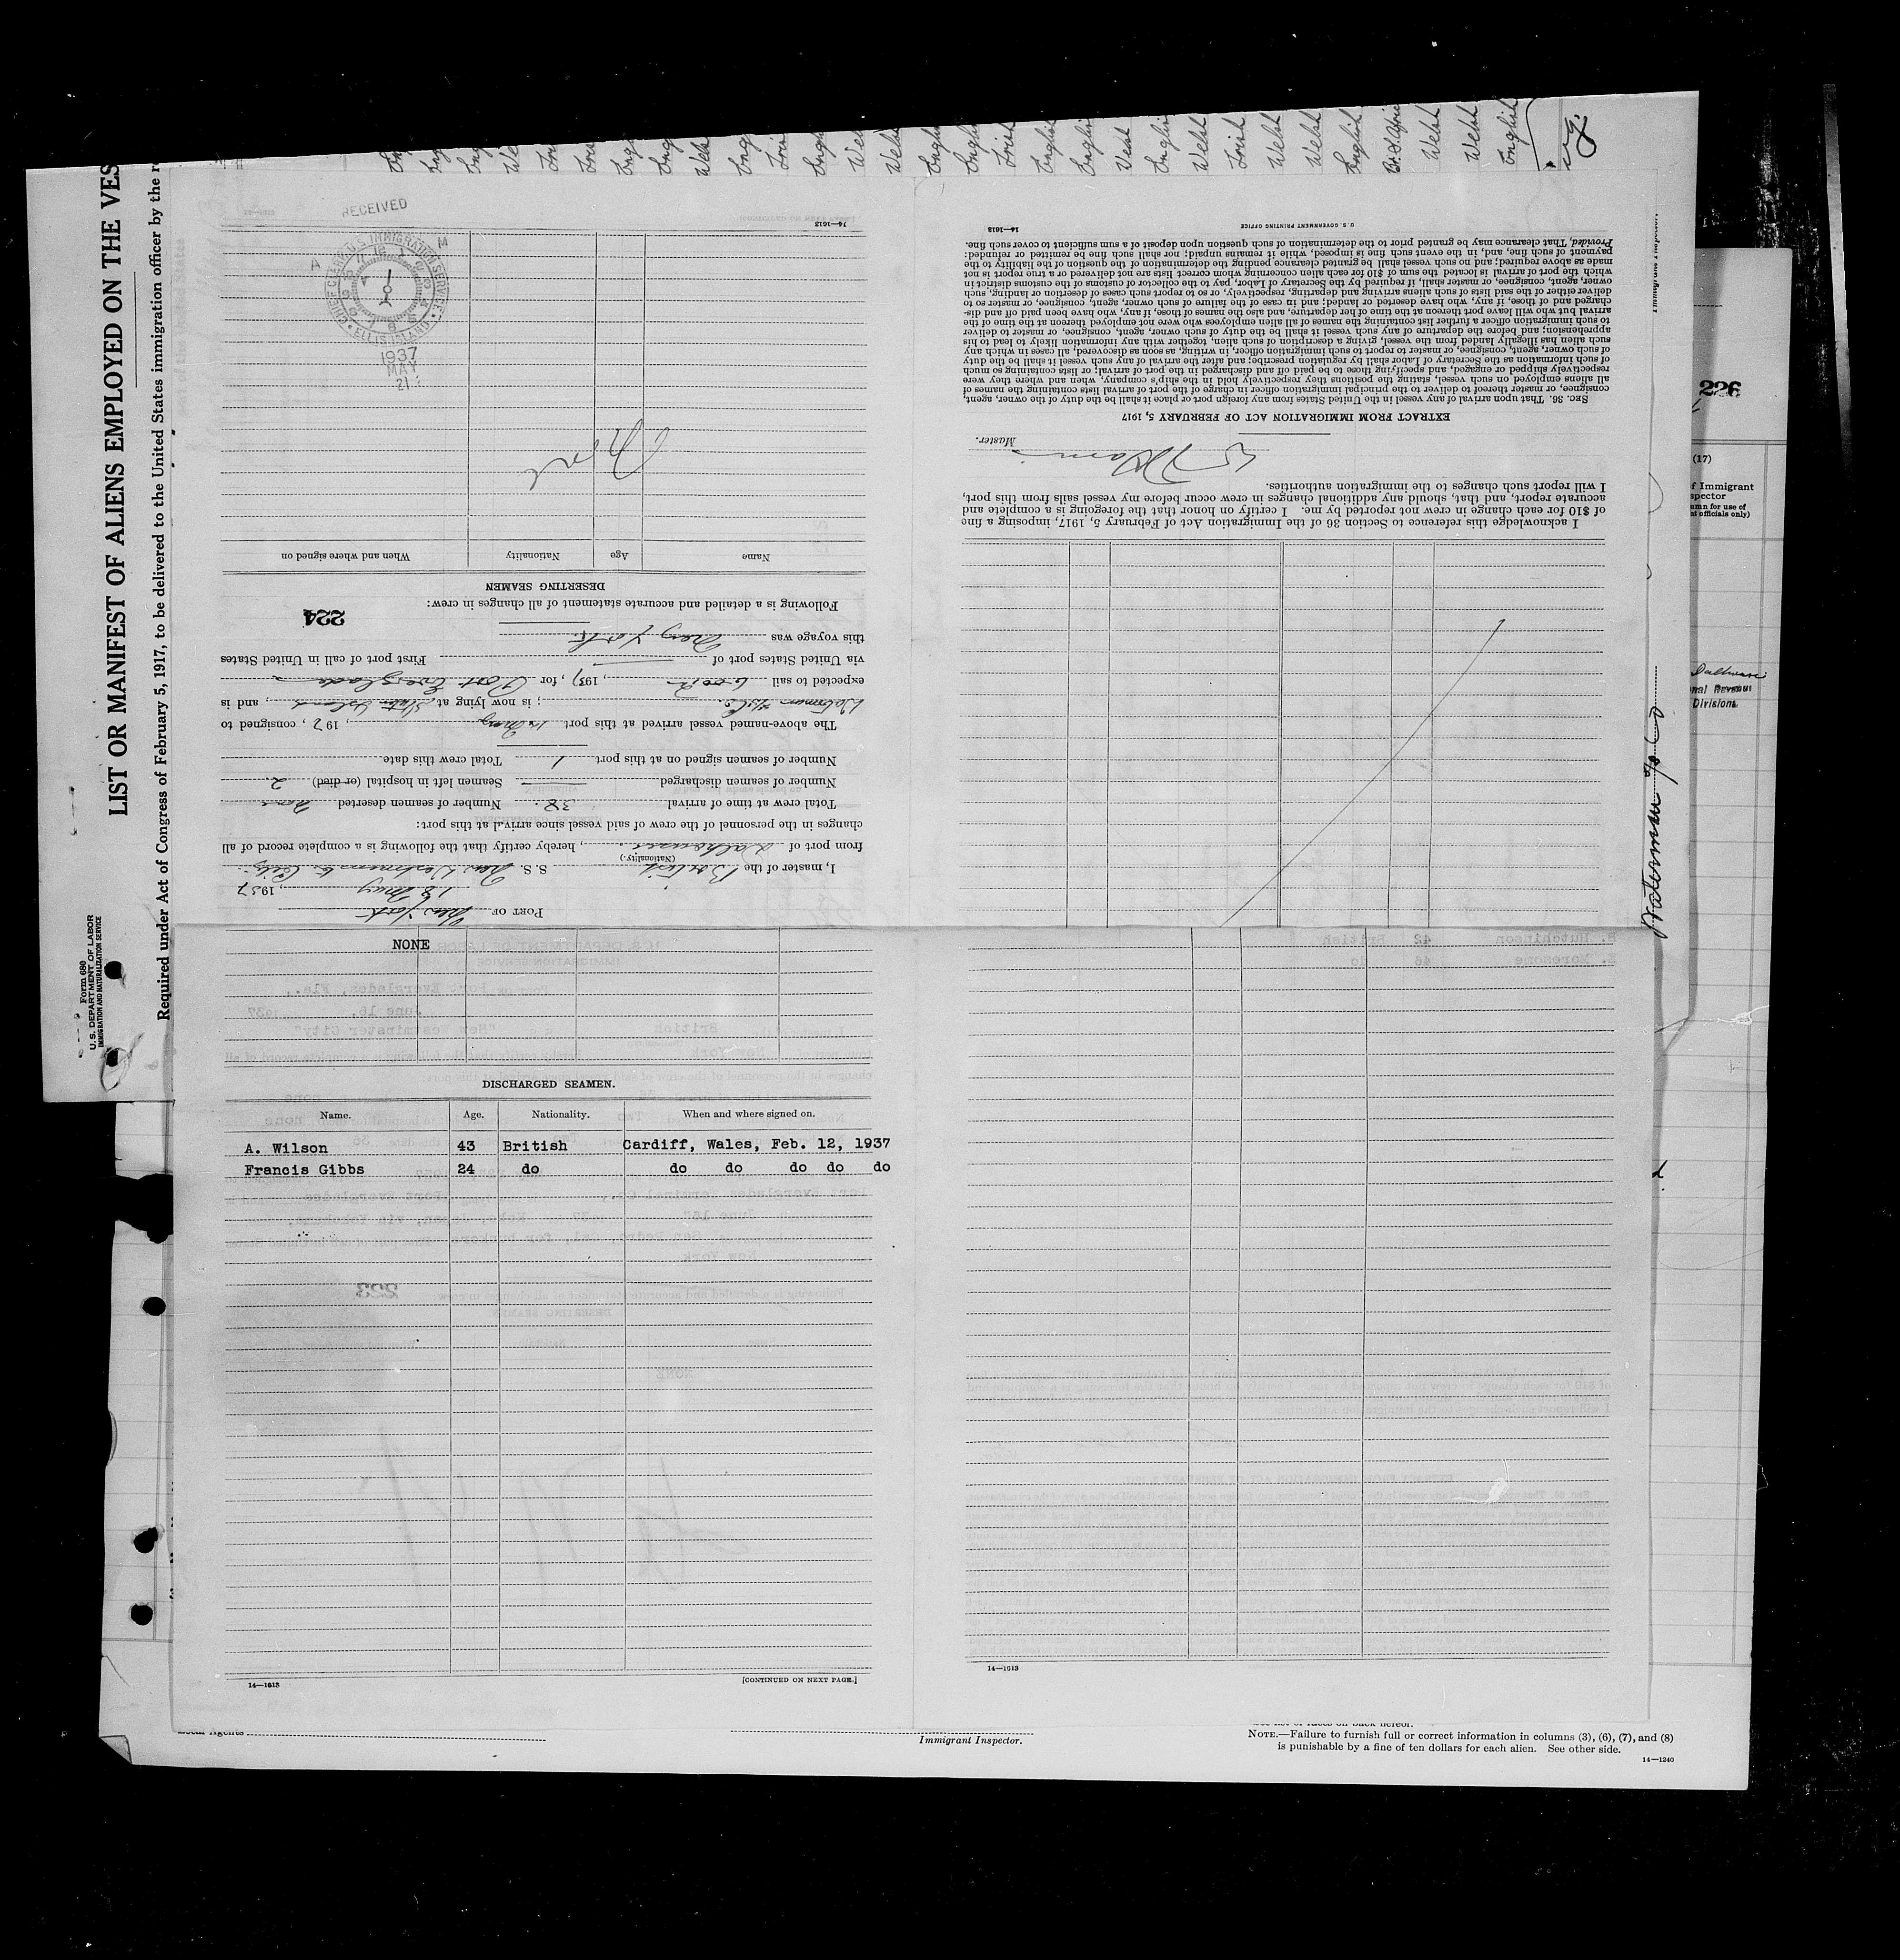 LIST OR MANIFEST OF ALIENS EMPLOYED ON THE VES
Required under Act of Congress of February 5, 1917, to be delivered to the United States immigration officer by the r
Form 680
U.S. DEPARTMENT OF LABOR
IMMIGRATION AND NATURALIZATION SERVICE
English
Welsh
Irish
226
(17)
f Immigrant
spector
umn for use of
nt officials only)
nal Revenue
Divisions
Waterman
PORT OF New York
18 May, 1937
I, master of the British S. S. New Westminster City
(Nationality)
from port of Dalhousie, hereby certify that the following is a complete record of all
changes in the personnel of the crew of said vessel since arrival at this port:
Total crew at time of arrival 38. Number of seamen deserted none
Number of seamen discharged Seamen left in hospital (or died) 2.
Number of seamen signed on at this port 1 Total crew this date
The above-named vessel arrived at this port May, 1937, consigned to
Waterman; is now lying at Staten Island, and is
expected to sail, 1937, for Port Everglades
via United States port of First port of call in United States
this voyage was New York.
Following is a detailed and accurate statement of all changes in crew:
224
DESERTING SEAMEN
Name Age Nationality When and where signed on
14—1613
RECEIVED
CHIEF CLERK U.S. IMMIGRATION SERVICE
ELLIS ISLAND
1937
MAY
21
I acknowledge this reference to Section 36 of the Immigration Act of February 5, 1917, imposing a fine
of $10 for each change in crew not reported by me. I certify on honor that the foregoing is a complete and
accurate report, and that, should any additional changes in crew occur before my vessel sails from this port,
I will report such changes to the immigration authorities.
Master.
EXTRACT FROM IMMIGRATION ACT OF FEBRUARY 5, 1917
SEC. 36. That upon arrival of any vessel in the United States from any foreign port or place it shall be the duty of the owner, agent,
consignee, or master thereof to deliver to the principal immigration officer in charge of the port of arrival lists containing the names of
all aliens employed on such vessel, stating the positions they respectively hold in the ship's company, when and where they were
respectively shipped or engaged, and specifying those to be paid off and discharged in the port of arrival; or lists containing so much
of such information as the Secretary of Labor shall by regulation prescribe; and after the arrival of any such vessel it shall be the duty
of such owner, agent, consignee, or master to report to such immigration officer, in writing, as soon as discovered, all cases in which any
such alien has illegally landed from the vessel, giving a description of such alien, together with any information likely to lead to his
apprehension; and before the departure of any such vessel it shall be the duty of such owner, agent, consignee, or master to deliver
to such immigration officer a further list containing the names of all alien employees who were not employed thereon at the time of the
arrival but who will leave port thereon at the time of her departure, and also the names of those, if any, who have been paid off and dis-
charged and of those, if any, who have deserted or landed; and in case of the failure of such owner, agent, consignee, or master to
deliver either of the said lists of such aliens arriving and departing, respectively, or so to report such cases of desertion or landing, such
owner, agent, consignee, or master, shall, if required by the Secretary of Labor, pay to the collector of customs of the customs district in
which the port of arrival is located the sum of $10 for each alien concerning whom correct lists are not delivered or a true report is not
made as above required; and no such vessel shall be granted clearance pending the determination of the question of the liability to the
payment of such fine, and, in the event such fine is imposed, while it remains unpaid; nor shall such fine be remitted or refunded:
Provided, That clearance may be granted prior to the determination of such question upon deposit of a sum sufficient to cover such fine.
14—1613
U. S. GOVERNMENT PRINTING OFFICE
NONE
DISCHARGED SEAMEN.
Name. Age. Nationality. When and where signed on.
A. Wilson 43 British Cardiff, Wales, Feb. 12, 1937
Francis Gibbs 24 do do do do do do
14—1613
[CONTINUED ON NEXT PAGE.]
14—1613
Local Agents
Immigrant Inspector.
NOTE.—Failure to furnish full or correct information in columns (3), (6), (7), and (8)
is punishable by a fine of ten dollars for each alien. See other side.
14—1240